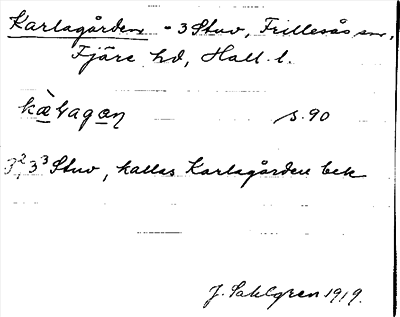 Karlagården - 3 Stuv, Frillesås sn,
Fjäre hd, Hall. l.
kàlagan s. 90
3², 3³ Stuv, kallas Karlagården bek
J. Sahlgren 1919.